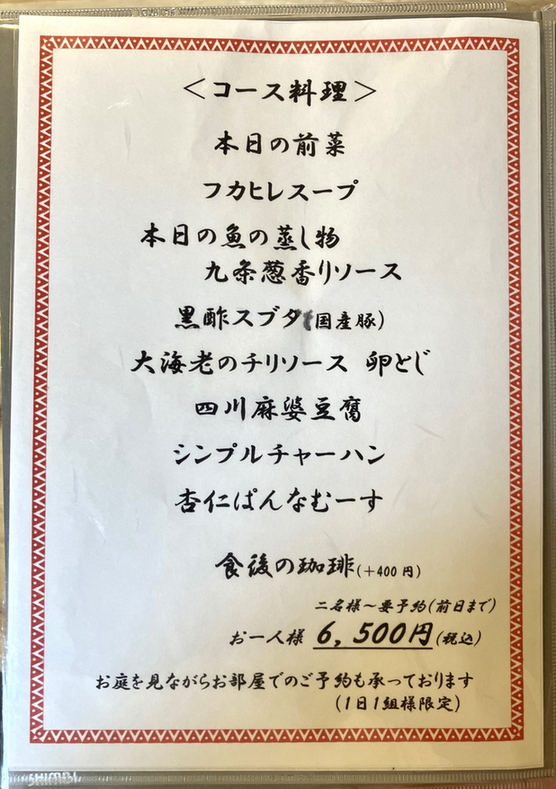 ＜コース料理＞
本日の前菜
フカヒレスープ
本日の魚の蒸し物
九条葱香りソース
黒酢スブタ(国産豚)
大海老のチリソース 卵とじ
四川麻婆豆腐
シンプルチャーハン
杏仁ぱんなむーす
食後の珈琲(＋400円)
二名様～要予約(前日まで)
お一人様 6,500円(税込)
お庭を見ながらお部屋でのご予約も承っております
(1日1組様限定)
SHIMBI